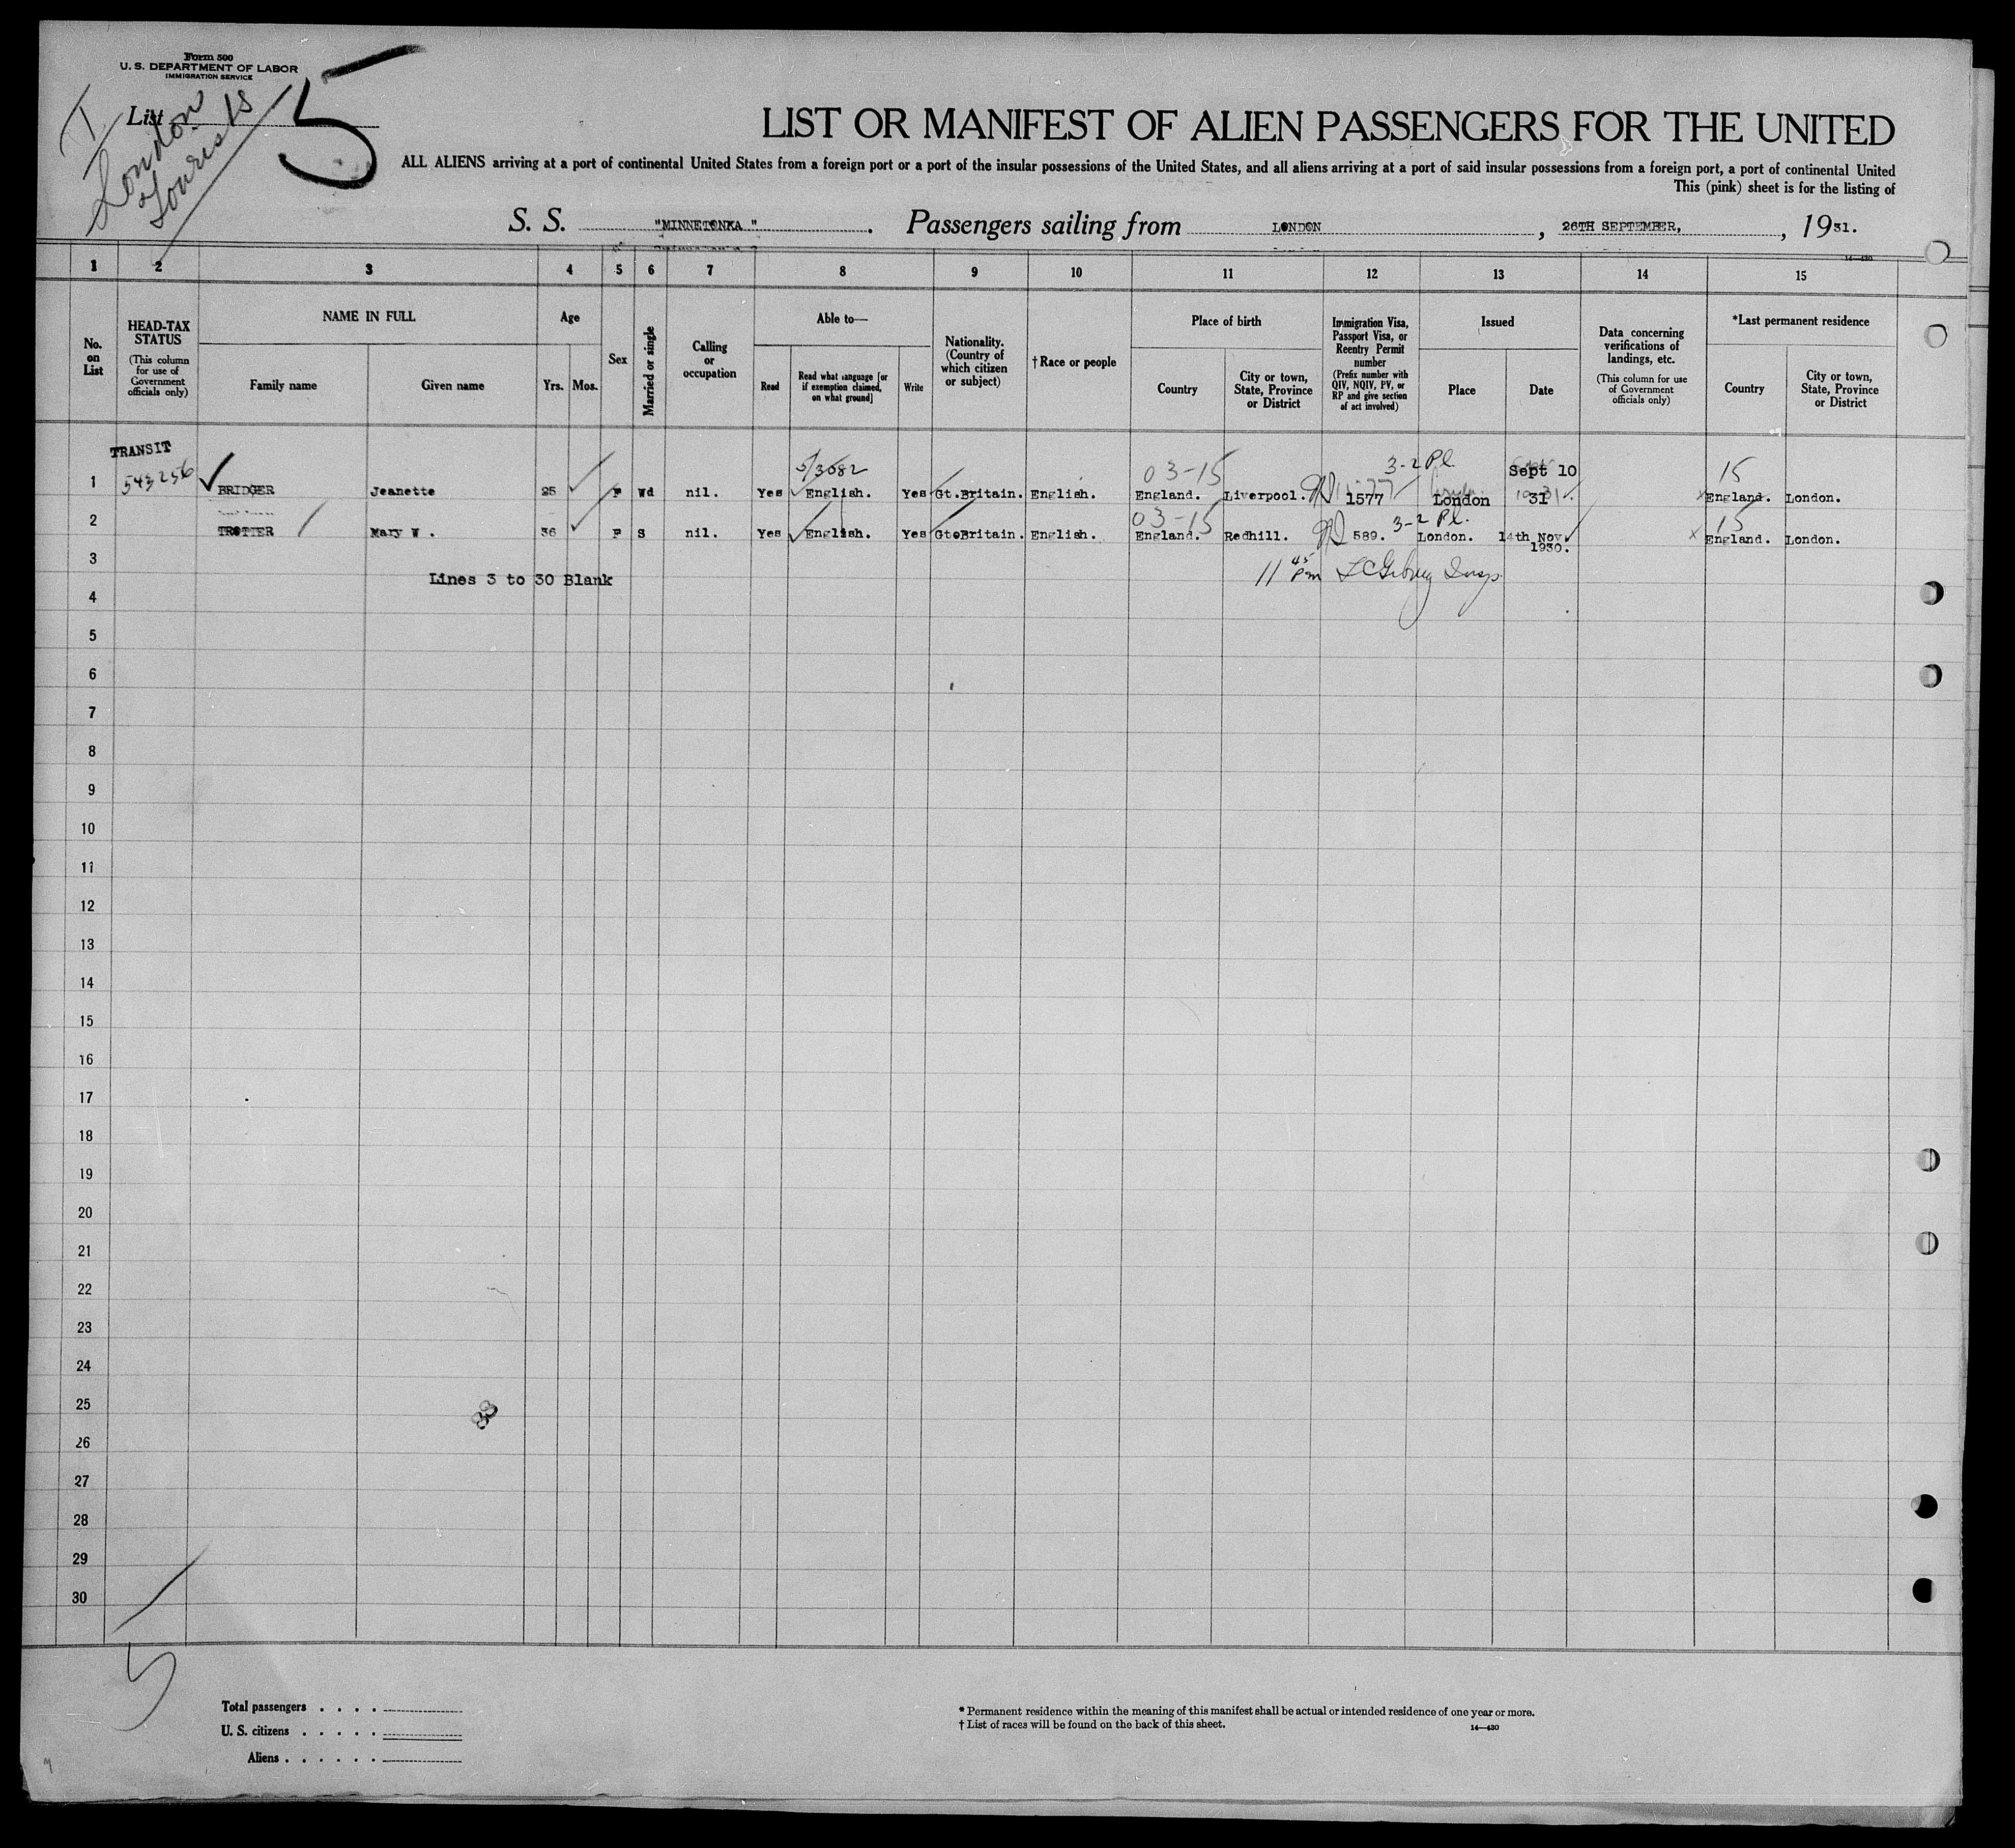 Form 500
U. S. DEPARTMENT OF LABOR
IMMIGRATION SERVICE
I
List
London
Tourists
5
LIST OR MANIFEST OF ALIEN PASSENGERS FOR THE UNITED
ALL ALIENS arriving at a port of continental United States from a foreign port or a port of the insular possessions of the United States, and all aliens arriving at a port of said insular possessions from a foreign port, a port of continental United
This (pink) sheet is for the listing of
S. S. "MINNETONKA". Passengers sailing from LONDON, 26TH SEPTEMBER, 1931.
14—430
1 2 3 4 5 6 7 8 9 10 11 12 13 14 15
No. on List
HEAD-TAX STATUS
(This column for use of Government officials only)
NAME IN FULL
Family name
Given name
Age
Yrs. Mos.
Sex
Married or single
Calling or occupation
Able to—
Read
Read what language [or if exemption claimed, on what ground]
Write
Nationality. (Country of which citizen or subject)
†Race or people
Place of birth
Country
City or town, State, Province or District
Immigration Visa, Passport Visa, or Reentry Permit number
(Prefix number with QIV, NQIV, PV, or RP and give section of act involved)
Issued
Place
Date
Data concerning verifications of landings, etc.
(This column for use of Government officials only)
*Last permanent residence
Country
City or town, State, Province or District
TRANSIT
543256
5/3082
03-15
3-2 Pl.
Sept 10
15
1 BRIDGER Jeanette 25 F Wd nil. Yes English. Yes Gt.Britain. English. England. Liverpool. 1577 London 31 England. London.
03-15
3-2 Pl.
15
2 TROTTER Mary W. 36 F S nil. Yes English. Yes GtoBritain. English. England. Redhill. 589. London. 14th Nov. 1930. England. London.
3
Lines 3 to 30 Blank
11 45 Pm
4
5
6
7
8
9
10
11
12
13
14
15
16
17
18
19
20
21
22
23
24
25
33
26
27
28
29
30
5
Total passengers . . . .
U. S. citizens . . . . .
Aliens . . . . . .
* Permanent residence within the meaning of this manifest shall be actual or intended residence of one year or more.
† List of races will be found on the back of this sheet.
14—430